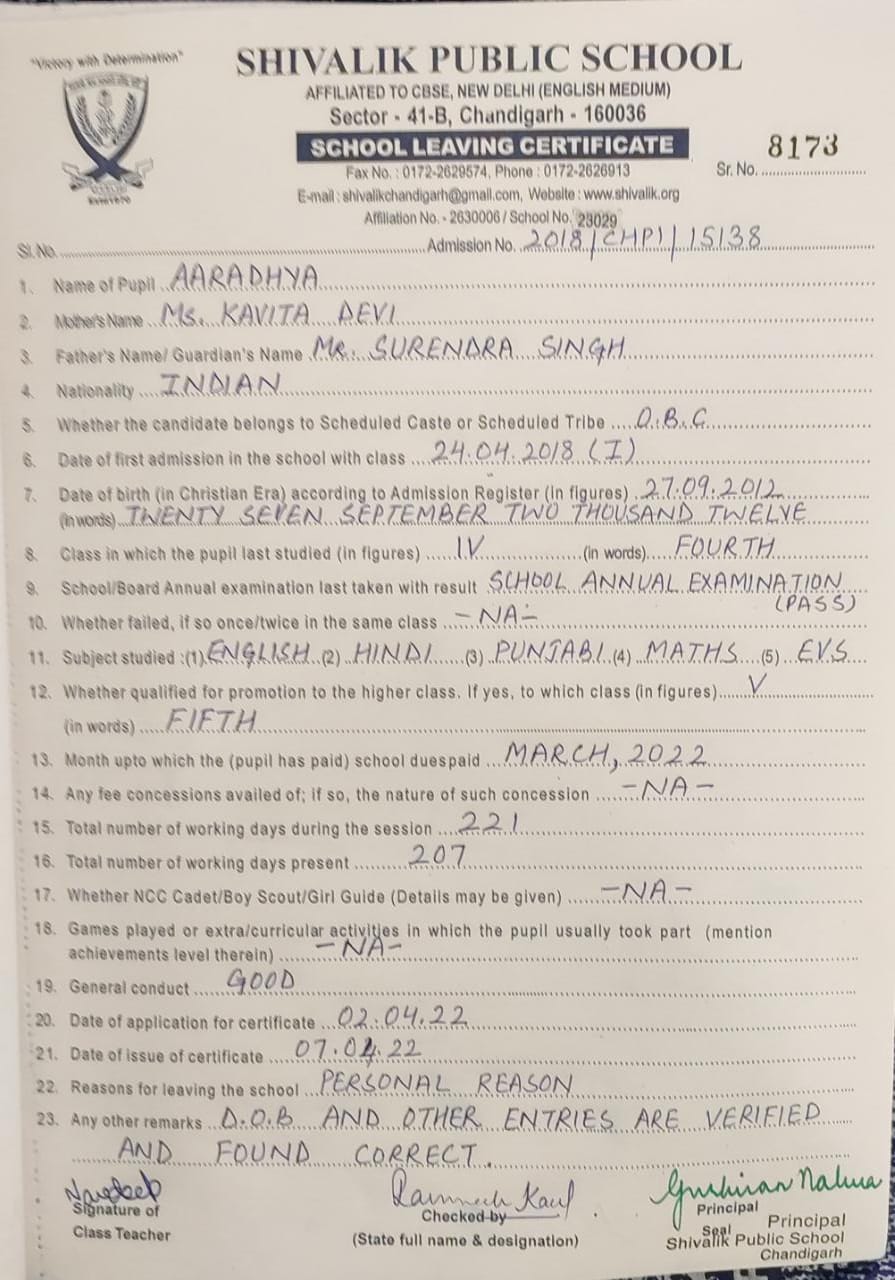 "Victory with Determination"
SHIVALIK PUBLIC SCHOOL
AFFILIATED TO CBSE, NEW DELHI (ENGLISH MEDIUM)
Sector - 41-B, Chandigarh - 160036
SCHOOL LEAVING CERTIFICATE
Sr. No. 8173
Fax No. : 0172-2629574, Phone : 0172-2626913
E-mail : shivalikchandigarh@gmail.com, Website : www.shivalik.org
Affiliation No. - 2630006 / School No. 23029
Sl. No. Admission No. 2018/CHP1/15138
1. Name of Pupil AARADHYA
2. Mother's Name Ms. KAVITA DEVI
3. Father's Name/ Guardian's Name Mr. SURENDRA SINGH
4. Nationality INDIAN
5. Whether the candidate belongs to Scheduled Caste or Scheduled Tribe O.B.C
6. Date of first admission in the school with class 24.04.2018 (I)
7. Date of birth (in Christian Era) according to Admission Register (in figures) 27.09.2012
(in words) TWENTY SEVEN SEPTEMBER TWO THOUSAND TWELVE
8. Class in which the pupil last studied (in figures) IV (in words) FOURTH
9. School/Board Annual examination last taken with result SCHOOL ANNUAL EXAMINATION
(PASS)
10. Whether failed, if so once/twice in the same class -NA-
11. Subject studied :(1) ENGLISH (2) HINDI (3) PUNJABI (4) MATHS (5) EVS
12. Whether qualified for promotion to the higher class. If yes, to which class (in figures) V
(in words) FIFTH
13. Month upto which the (pupil has paid) school duespaid MARCH, 2022
14. Any fee concessions availed of; if so, the nature of such concession -NA-
15. Total number of working days during the session 221
16. Total number of working days present 207
17. Whether NCC Cadet/Boy Scout/Girl Guide (Details may be given) -NA-
18. Games played or extra/curricular activities in which the pupil usually took part (mention
achievements level therein) -NA-
19. General conduct GOOD
20. Date of application for certificate 02.04.22
21. Date of issue of certificate 07.04.22
22. Reasons for leaving the school PERSONAL REASON
23. Any other remarks D.O.B AND OTHER ENTRIES ARE VERIFIED
AND FOUND CORRECT.
Signature of
Class Teacher
Kaul
Checked by
(State full name & designation)
Principal
Seal
Principal
Shivalik Public School
Chandigarh